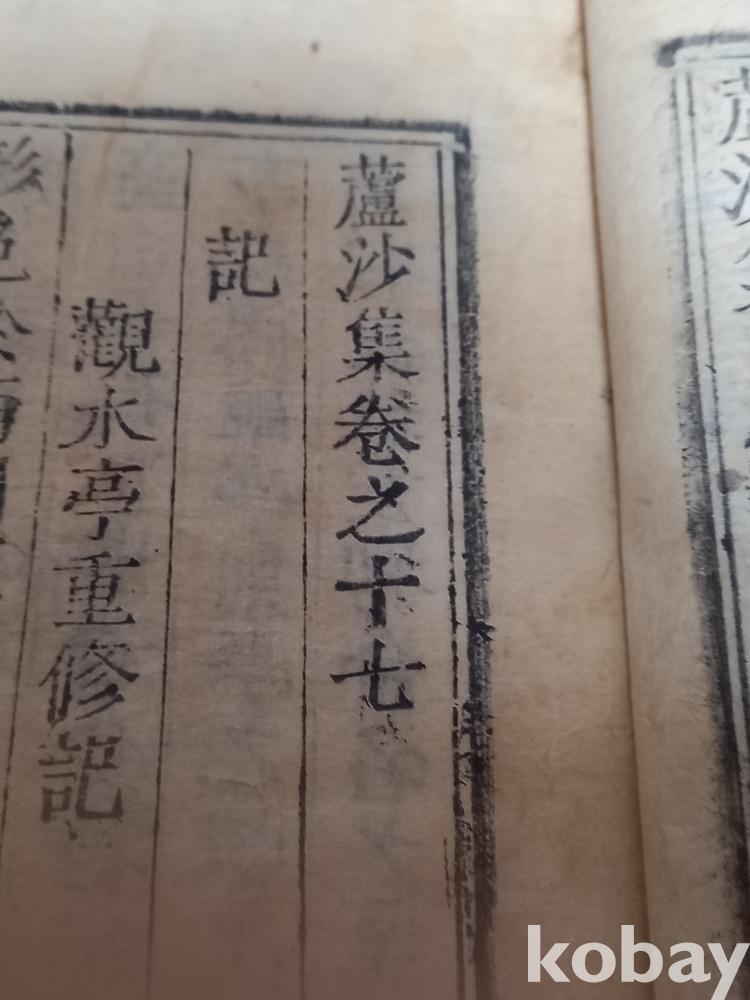 蘆沙集卷之十七
記
觀水亭重修記
kobay